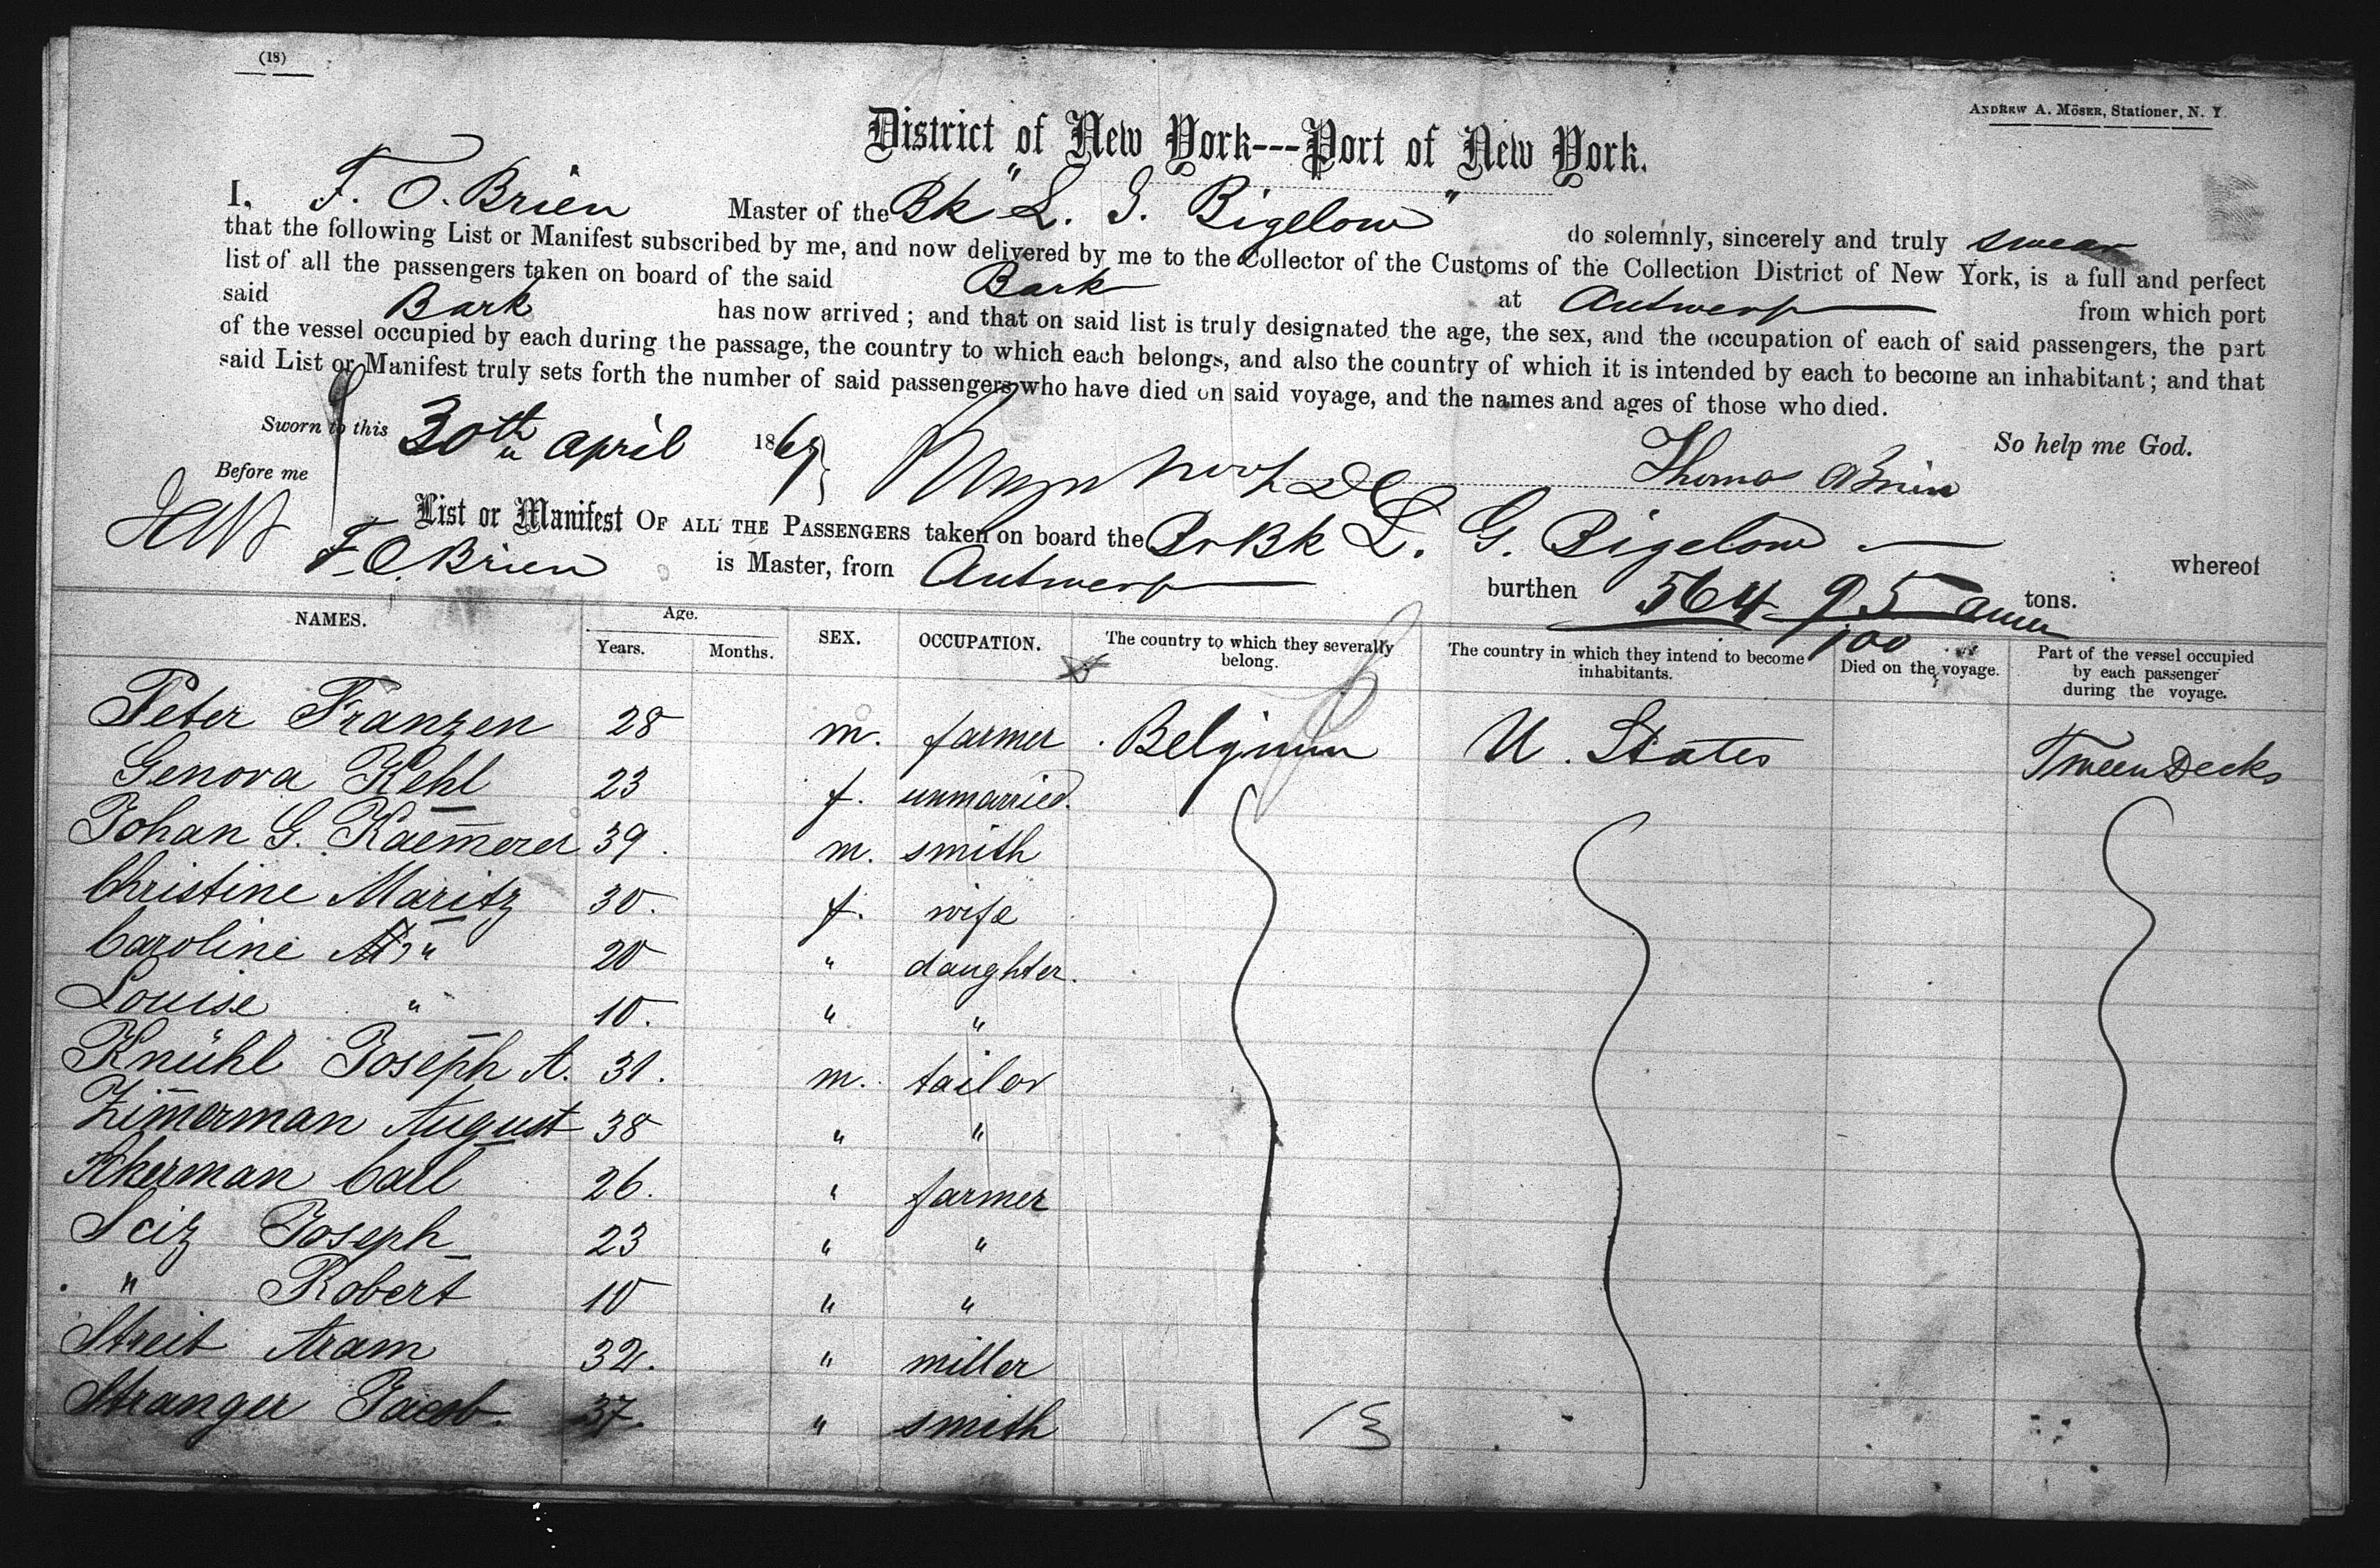 (18)
ANDREW A. MÖSER, Stationer, N. Y.
District of New York---Port of New York.
I, F. O. Brien Master of the Bk "L. G. Bigelow" do solemnly, sincerely and truly swear
that the following List or Manifest subscribed by me, and now delivered by me to the Collector of the Customs of the Collection District of New York, is a full and perfect
list of all the passengers taken on board of the said Bark at Antwerp from which port
said Bark has now arrived; and that on said list is truly designated the age, the sex, and the occupation of each of said passengers, the part
of the vessel occupied by each during the passage, the country to which each belongs, and also the country of which it is intended by each to become an inhabitant; and that
said List or Manifest truly sets forth the number of said passengers who have died on said voyage, and the names and ages of those who died.
So help me God.
Sworn to this 30th april 1867
Thomas OBrien
Before me
List or Manifest OF ALL THE PASSENGERS taken on board the Br Bk L. G. Bigelow whereof
F. O. Brien is Master, from Antwerp burthen 564 95/100 tons.
NAMES. Age. Years. Months. SEX. OCCUPATION. The country to which they severally belong. The country in which they intend to become inhabitants. Died on the voyage. Part of the vessel occupied by each passenger during the voyage.
Peter Franzen 28 m. farmer Belgium U. States Tween Decks
Genova Kehl 23 f. unmarried.
Johan G. Kaem̅erer 39. m. smith
Christine Maritz 30. f. wife
Caroline " 20 " daughter.
Louise " 10. " "
Knühl Joseph A. 31. m. tailor
Zim̅erman August 38 " "
Akerman Call 26. " farmer
Seiz Joseph 23 " "
" Robert 10 " "
Streit Aram 32. " miller
Stranger Jacob. 37. " smith
13